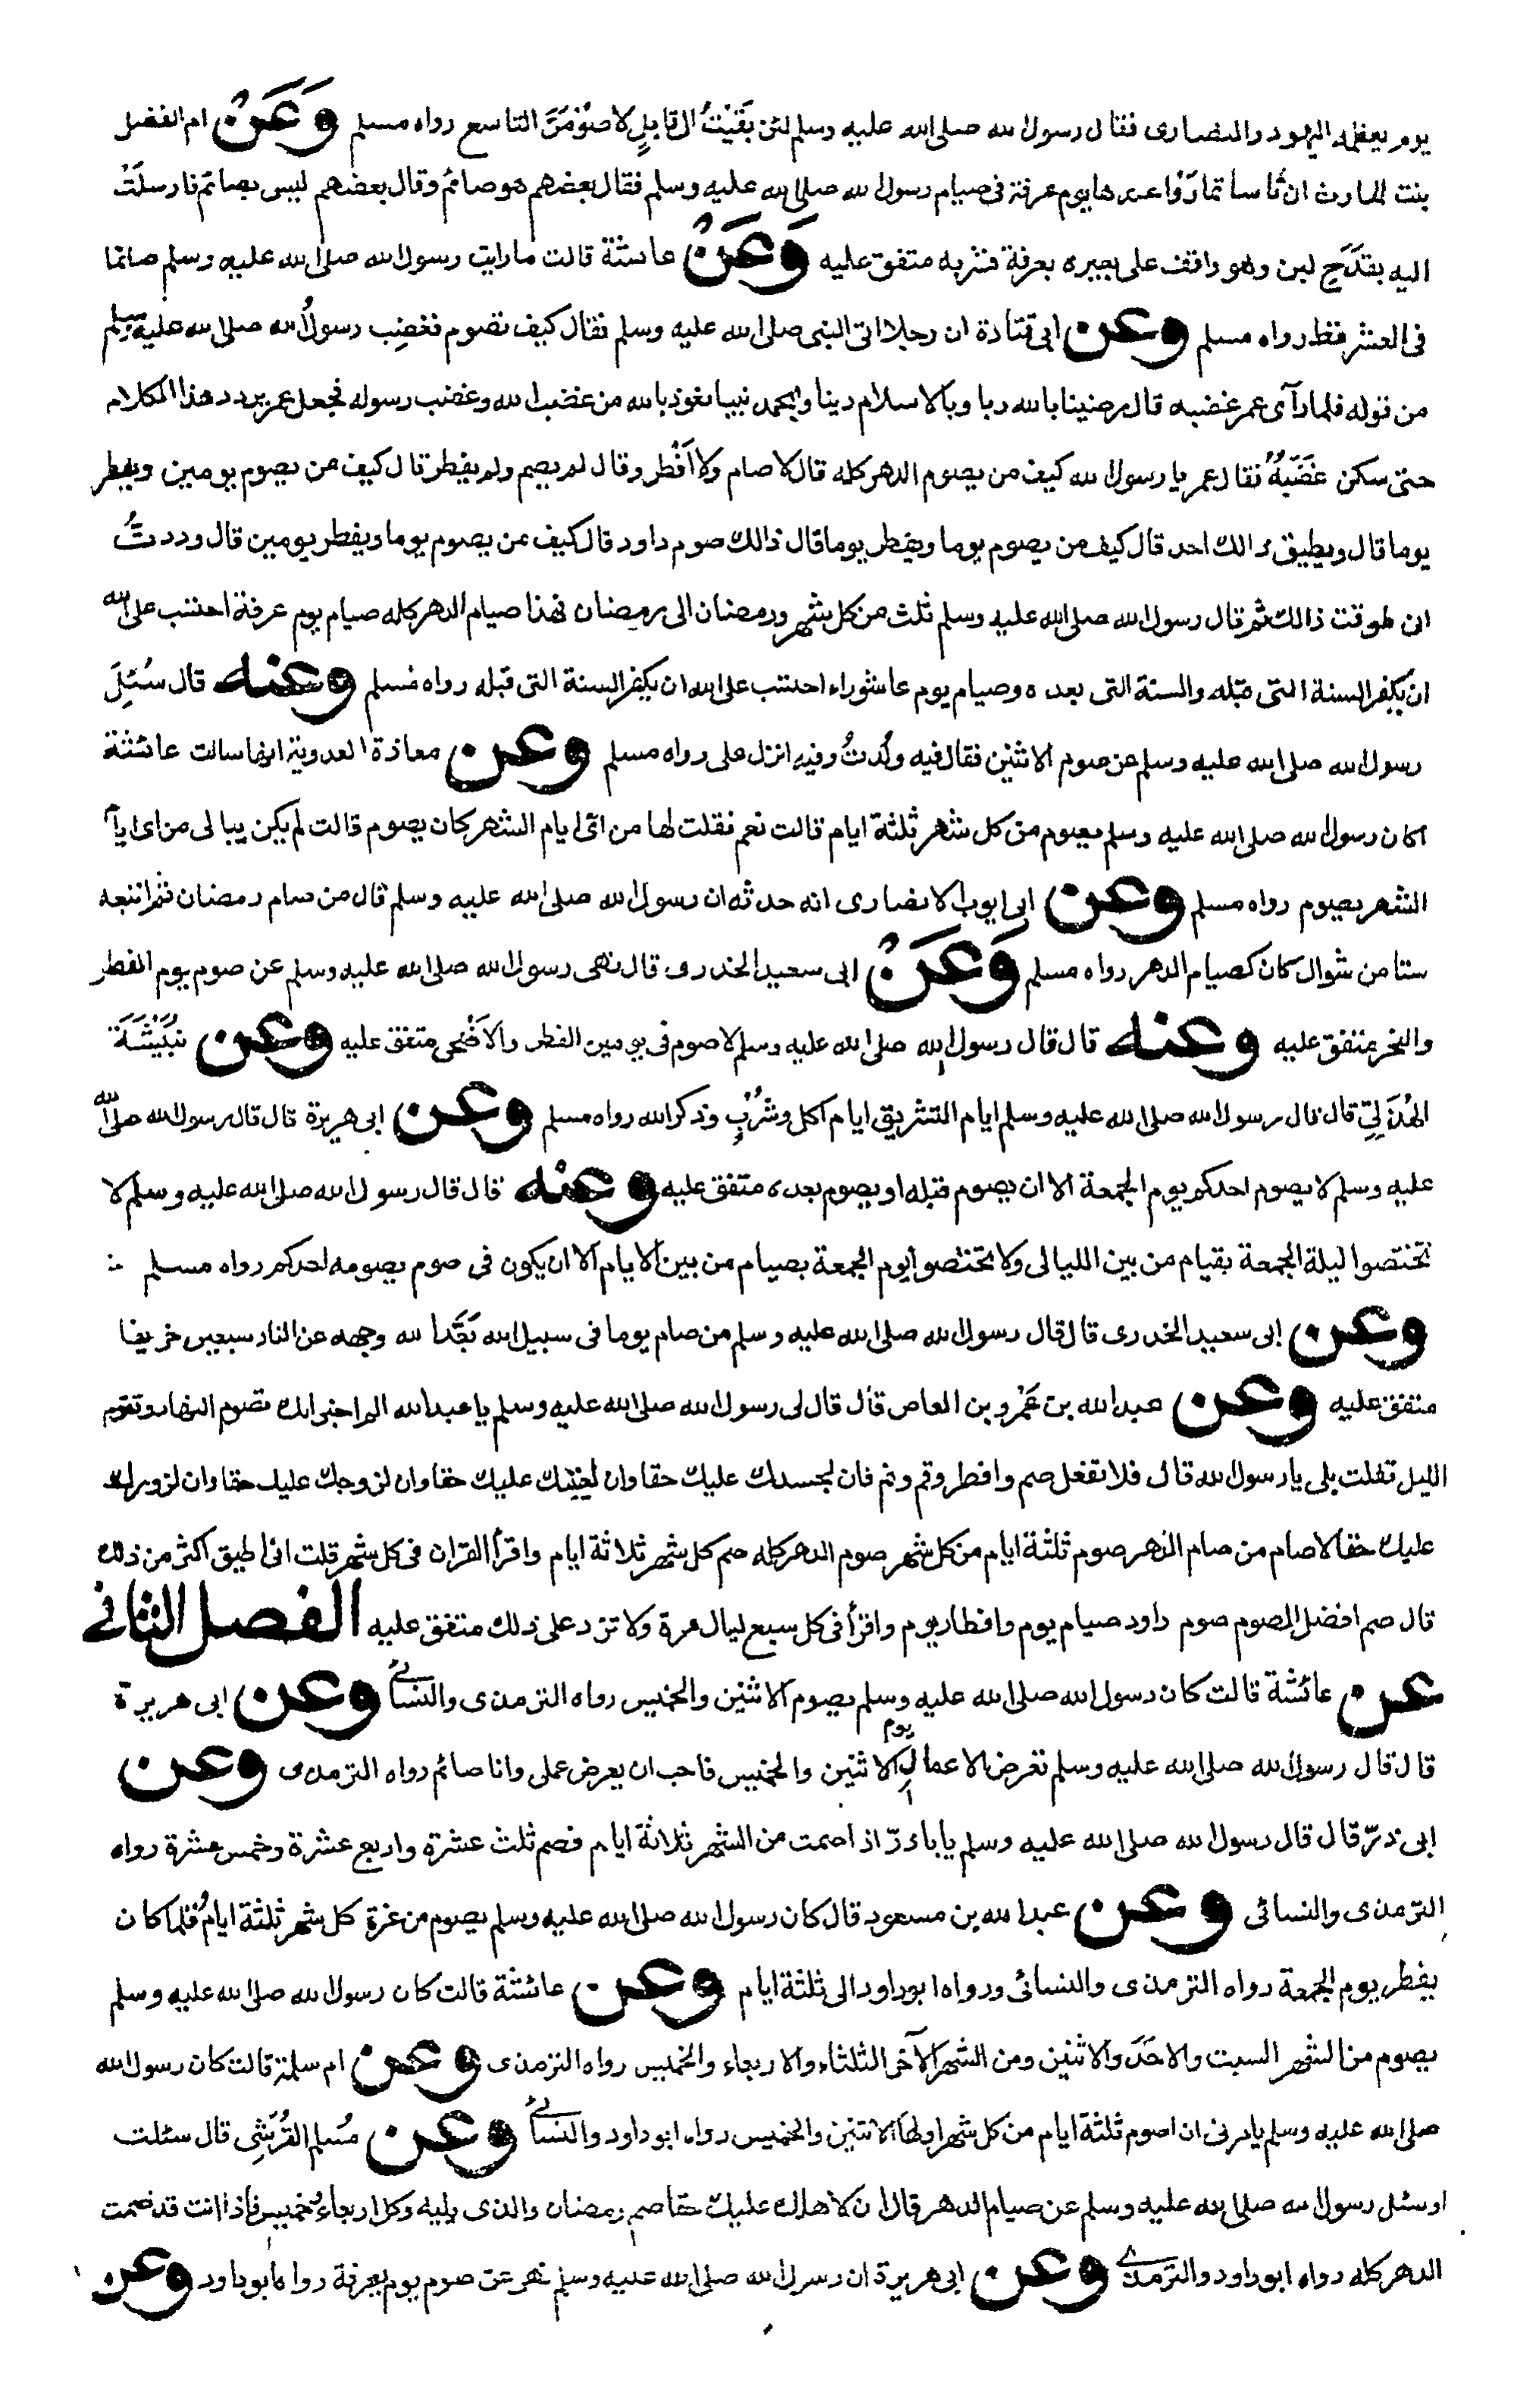 يوم يعظمه اليهود والنصارى فقال رسول الله صلى الله عليه وسلم لئن بَقَيْتُ الى قابلٍ لاصوْمَنَّ التاسع رواه مسلم وَعَنْ ام الفضل
بنت الحارث ان ناسا تمارَوْا عندها يوم عرفة فى صيام رسول الله صلى الله عليه وسلم فقال بعضهم هو صائم وقال بعضهم ليس بصائم فارسلَتْ
اليه بقدَحِ لبن وهو واقف على بعيره بعرفة فشربه متفق عليه وَعَنْ عائشة قالت مارايت رسول الله صلى الله عليه وسلم صائما
فى العشر قط رواه مسلم وعن ابى قتادة ان رجلا اتى النبى صلى الله عليه وسلم فقال كيف تصوم فغضِب رسولُ الله صلى الله عليه وسلم
من قوله فلما رآى عمر غضبه قال رضينا بالله ربا وبالاسلام دينا وبمحمد نبيا نعوذ بالله من غضب الله وغضب رسوله فجعل عمر يردد هذا الكلام
حتى سكن غضَبهُ فقال عمر يا رسول الله كيف من يصوم الدهر كله قال لا صام ولا اَفْطر وقال لم يصم ولم يفطر قال كيف من يصوم يومين ويفطر
يوما قال ويطيق ذالك احد قال كيف من يصوم يوما ويفطر يوما قال ذالك صوم داود قال كيف من يصوم يوما ويفطر يومين قال وددتُ
انى طوقت ذالك ثم قال رسول الله صلى الله عليه وسلم ثلث من كل شهر ورمضان الى رمضان فهذا صيام الدهر كله صيام يوم عرفة احتسب على الله
ان يكفر السنة التى قبله والسنة التى بعده وصيام يوم عاشوراء احتسب على الله ان يكفر السنة التى قبله رواه مسلم وعنه قال سُئلَ
رسول الله صلى الله عليه وسلم عن صوم الاثنين فقال فيه ولُدتُ وفيه انزل على رواه مسلم وعن معاذة العدوية انها سالت عائشة
اكان رسول الله صلى الله عليه وسلم يصوم من كل شهر ثلثة ايام قالت نعم فقلت لها من اىّ ايام الشهر كان يصوم قالت لم يكن يبالى من اى ايام
الشهر يصوم رواه مسلم وعن ابى ايوب الانصارى انه حدثه ان رسول الله صلى الله عليه وسلم قال من صام رمضان ثم اتبعه
ستا من شوال كان كصيام الدهر رواه مسلم وَعَنْ ابى سعيد الخدرى قال نهى رسول الله صلى الله عليه وسلم عن صوم يوم الفطر
والنحر متفق عليه وعنه قال قال رسول الله صلى الله عليه وسلم لا صوم فى يومين الفطر والاَضْحى متفق عليه وعن نُبَيْشَةَ
الهُذَلِىّ قال قال رسول الله صلى الله عليه وسلم ايام التشريق ايام اكل وشُرْبٍ وذكر الله رواه مسلم وعن ابى هريرة قال قال رسول الله صلى الله
عليه وسلم لا يصوم احدكم يوم الجمعة الا ان يصوم قبله او يصوم بعده متفق عليه وعنه قال قال رسول الله صلى الله عليه وسلم لا
تختصوا ليلة الجمعة بقيام من بين الليالى ولا تختصوا يوم الجمعة بصيام من بين الايام الا ان يكون فى صوم يصومه احدكم رواه مسلم
وعن ابى سعيد الخدرى قال قال رسول الله صلى الله عليه وسلم من صام يوما فى سبيل الله بَعَّدَ الله وجهه عن النار سبعين خريفا
متفق عليه وعن عبد الله بن عَمْرو بن العاص قال قال لى رسول الله صلى الله عليه وسلم يا عبد الله الم اخبر انك تصوم النهار وتقوم
الليل فقلت بلى يا رسول الله قال فلا تفعل صم وافطر وقم ونم فان لجسدك عليك حقا وان لعَيْنِك عليك حقا وان لزوجك عليك حقا وان لزورك
عليك حقا لا صام من صام الدهر صوم ثلثة ايام من كل شهر صوم الدهر كله صم كل شهر ثلاثة ايام واقرأ القران فى كل شهر قلت انى اطيق اكثر من ذلك
قال صم افضل الصوم صوم داود صيام يوم وافطار يوم واقرأ فى كل سبع ليال مرة ولا تزد على ذلك متفق عليه الفصل الثانى
عن عائشة قالت كان رسول الله صلى الله عليه وسلم يصوم الاثنين والخميس رواه الترمذى والنسائى وعن ابى هريرة
قال قال رسول الله صلى الله عليه وسلم تعرض الاعمال يوم الاثنين والخميس فاحب ان يعرض عملى وانا صائم رواه الترمذى وعن
ابى ذرّ قال قال رسول الله صلى الله عليه وسلم يا باذرّ اذا صمت من الشهر ثلاثة ايام فصم ثلث عشرة واربع عشرة وخمس عشرة رواه
الترمذى والنسائى وعن عبد الله بن مسعود قال كان رسول الله صلى الله عليه وسلم يصوم من غرة كل شهر ثلثة ايام وقلما كان
يفطر يوم الجمعة رواه الترمذى والنسائى ورواه ابوداود الى ثلثة ايام وعن عائشة قالت كان رسول الله صلى الله عليه وسلم
يصوم من الشهر السبت والاحَدَ والاثنين ومن الشهر الآخر الثلثاء والاربعاء والخميس رواه الترمذى وعن ام سلمة قالت كان رسول الله
صلى الله عليه وسلم يامرنى ان اصوم ثلثة ايام من كل شهر اولها الاثنين والخميس رواه ابوداود والنسائى وعن مُسلم القُرَشِى قال سئلت
او سئل رسول الله صلى الله عليه وسلم عن صيام الدهر قال ان لاهلك عليك حقا صم رمضان والذى يليه وكل اربعاء وخميس فاذا انت قد صمت
الدهر كله رواه ابوداود والترمذى وعن ابى هريرة ان رسول الله صلى الله عليه وسلم نهى عن صوم يوم عرفة بعرفة رواه ابوداود وعن